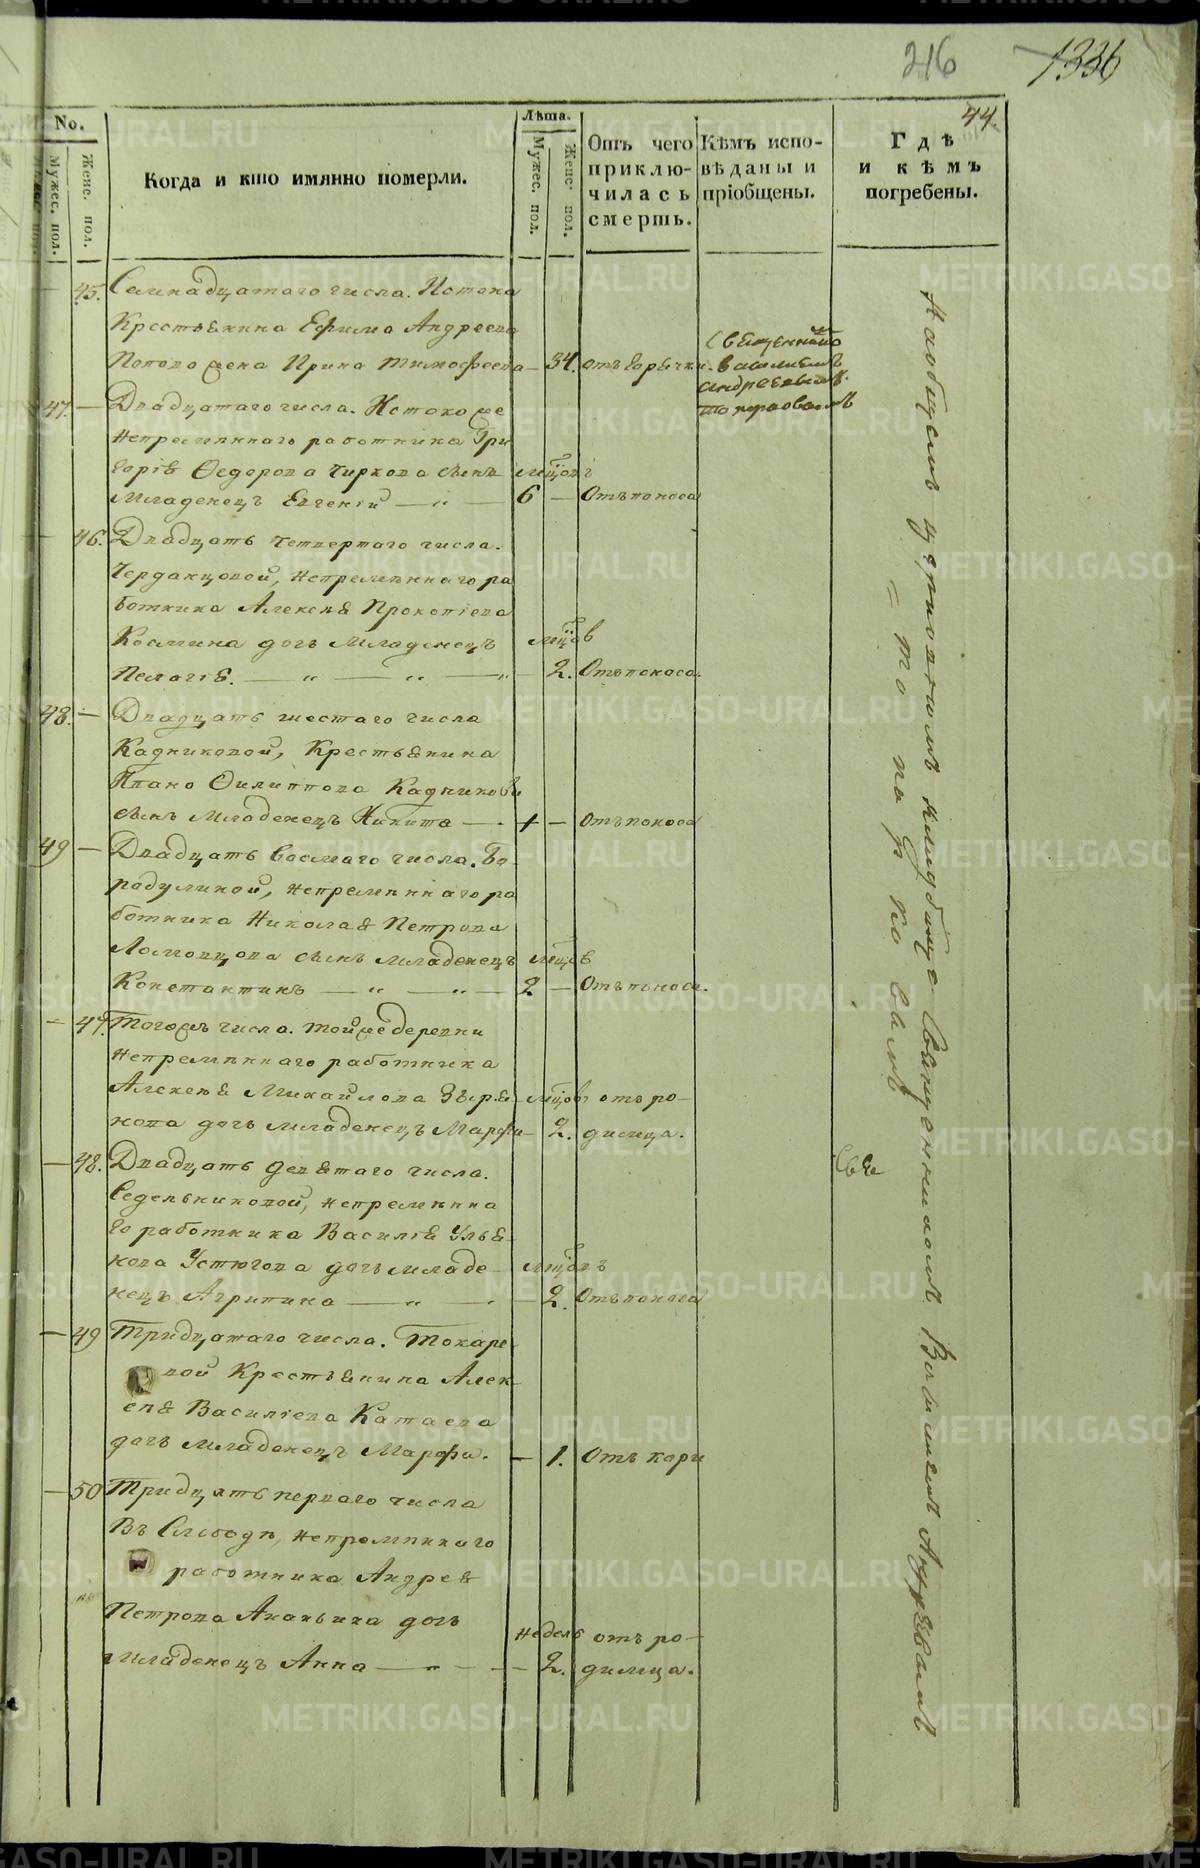 216 1336
44.
No.
Мужес. пол.
Женс. пол.
Когда и кто имянно померли.
Лѣта.
Мужес. пол.
Женс. пол.
Отъ чего
приклю-
чилась
смерть.
Кѣмъ испо-
вѣданы и
пріобщены.
Гдѣ
и кѣмъ
погребены.
45. Семнадцатаго числа. Истока
Крестьянина Ефима Андреева
Попова жена Ирина Тимофеева — 34. отъ горячки.
Священникомъ
Василіемъ
Андреевымъ
47. — Двадцатаго числа. Истока же
Непремѣннаго работника Гри
горія Федорова Чиркова сынъ мцовъ
Младенецъ Евгеній — " — 6 — Отъ поноса
— 46. Двадцать четвертаго числа.
Черданцовой, Непремѣннаго ра
ботника Алексѣя Прокопіева
Космина дочь младенецъ мцовъ
Пелагія. — " — " — " — 2. Отъ поноса.
48. — Двадцать шестаго числа
Кадниковой, Крестьянина
Ивана Филиппова Кадникова
сынъ младенецъ Никита — 1 — Отъ поноса
49 — Двадцать восмаго числа. Бо-
родулиной, непремѣннаго ра
ботника Николая Петрова
Ломовцова сынъ младенецъ мцовъ
Константинъ — " — " — 2 — Отъ поноса.
— 47. Тогожъ числа. Той же деревни
Непремѣннаго работника
Алексѣя Михайлова Зыря- мцовъ отъ ро-
нова дочь младенецъ Марфа — 2. димца.
— 48. Двадцать девятаго числа.
Седельниковой, непремѣнна
го работника Василія Улья-
нова Устюгова дочь младе- мцовъ
нецъ Агрипина — " — 2. Отъ поноса
— 49 Тридцатаго числа. Токаре
вой Крестьянина Алек
сѣя Василіева Катаева
дочь младенецъ Марфа. — 1. Отъ кори
— 50 Тридцать перваго числа
Въ Слободѣ, непремѣннаго
работника Андрея
Петрова Ананьина дочь
Недель отъ ро-
младенецъ Анна — " — — 2. димца.
На общемъ приходскомъ кладбище Священникомъ Василіемъ Андреевымъ
METRIKI.GASO-URAL.RU